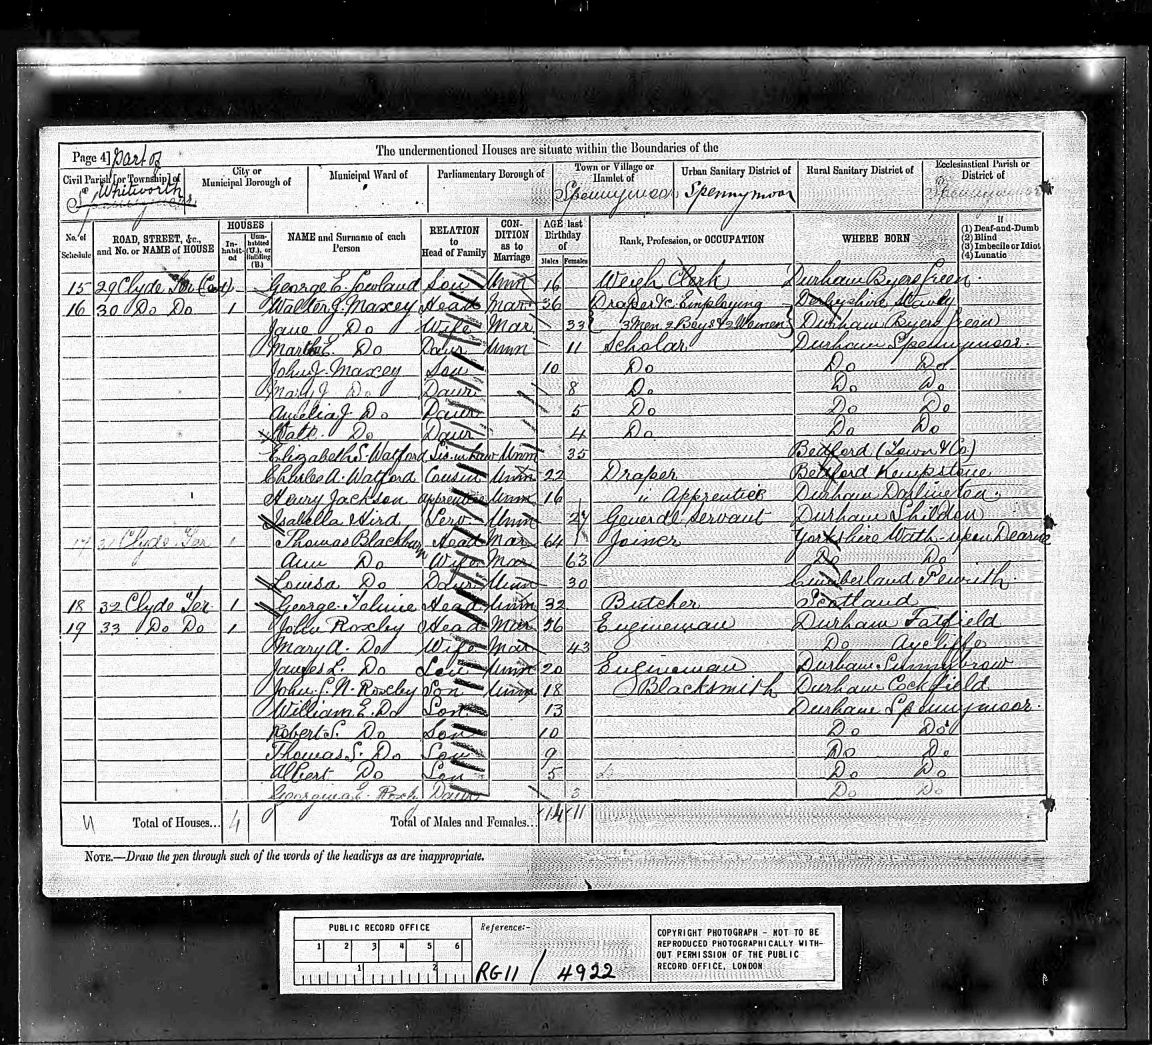 Page 4] Part of
The undermentioned Houses are situate within the Boundaries of the
Civil Parish [or Township] of
Whitworth
City or
Municipal Borough of
Municipal Ward of
Parliamentary Borough of
Town or Village or
Hamlet of
Spennymoor
Urban Sanitary District of
Spennymoor
Rural Sanitary District of
Ecclesiastical Parish or
District of
Spennymoor
No. of
Schedule
ROAD, STREET, &c.,
and No. or NAME of HOUSE
HOUSES
In-
habit-
ed
Unin-
habited
(U.), or
Building
(B.)
NAME and Surname of each
Person
RELATION
to
Head of Family
CON-
DITION
as to
Marriage
AGE last
Birthday
of
Males
Females
Rank, Profession, or OCCUPATION
WHERE BORN
If
(1) Deaf-and-Dumb
(2) Blind
(3) Imbecile or Idiot
(4) Lunatic
15 29 Clyde Ter George E. Son Unm 16 Weigh Clerk Durham Byers Green
16 30 Do Do 1 Walter J. Maxey Head Mar 36 Draper &c. Employing Derbyshire Stavely
Jane Do Wife Mar 33 3 Men 2 Boys & 2 Women Durham Byers Green
Martha E. Do Daur Unm 11 Scholar Durham Spennymoor
John J. Maxey Son 10 Do Do Do
Mary J. Do Daur 8 Do Do Do
Amelia J. Do Daur 5 Do Do Do
Kate Do Daur 4 Do Do Do
Elizabeth S. Watford Sis. in Law Unm 35 Bedford (Town & Co)
Charles A. Watford Cousin Unm 22 Draper Bedford Kempstone
Henry Jackson Apprentice Unm 16 " Apprentice Durham Darlington
Isabella Hird Serv Unm 27 General Servant Durham Shildon
17 31 Clyde Ter 1 Thomas Blackburn Head Mar 64 Joiner Yorkshire Wath-upon Dearne
Ann Do Wife Mar 63 Do Do
Louisa Do Daur Unm 30 Cumberland Penrith
18 32 Clyde Ter. 1 George Head Unm 32 Butcher Scotland
19 33 Do Do 1 John Roxby Head Mar 56 Engineman Durham Fatfield
Mary A. Do Wife Mar 43 Do Aycliffe
James L. Do Son Unm 20 Engineman Durham Sunnybrow
John S. N. Roxby Son Unm 18 Blacksmith Durham Cockfield
William E. Do Son 13 Durham Spennymoor
Robert S. Do Son 10 Do Do
Thomas S. Do Son 9 Do Do
Albert Do Son 5 Do Do
Georgina E. Roxby Daur 3 Do Do
4 Total of Houses... 4 Total of Males and Females... 14 11
NOTE.—Draw the pen through such of the words of the headings as are inappropriate.
PUBLIC RECORD OFFICE
1 2 3 4 5 6
1 2
Reference:-
RG11 / 4922
COPYRIGHT PHOTOGRAPH - NOT TO BE
REPRODUCED PHOTOGRAPHICALLY WITH-
OUT PERMISSION OF THE PUBLIC
RECORD OFFICE, LONDON